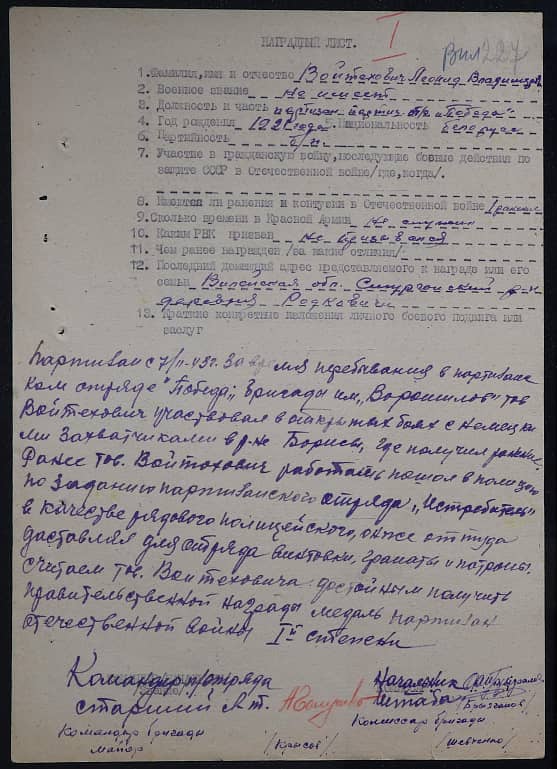 I
Вил 227
НАГРАДНЫЙ ЛИСТ.
1.Фамилия,имя и отчество Войтехович Леонид Владимиров
2. Военное звание не имеет
3. Должность и часть партизан партиз. отр. "Победа"
4. Год рождения 1921 года 5. Национальность белорус
6. Партийность б/п
7. Участие в гражданскую войну,последующие боевые действия по
защите СССР в Отечественной войне/где,когда/.
8. Имеются ли ранения и контузии в Отечественной войне 1 ранение
9.Сколько времени в Красной Армии не служил
10. Каким РВК призван не призывался
11. Чем ранее награжден /за какие отличия/:
12. Последний домашний адрес представляемого к награде или его
семьи Вилейская обл. Сморгонский р-н
деревня Редковичи
13. Краткие конкретные изложения личного боевого подвига или
заслуг
Партизан с 7/II-43г. За время перебывания в партизанс
ком отряде "Победа", бригады им. "Ворошилов" тов
Войтехович участвовал в открытых боях с немецки
ми захватчиками в р-не Борисы, где получил ранение.
Ранее тов. Войтохович работать пошол в полицию
по заданию партизанского отряда "Истребитель"
в качестве рядового полицейского, он же оттуда
доставлял для отряда винтовки, гранаты и патроны.
Считаем тов. Войтеховича достойным получить
правительственной награды медаль партизан
отечественной войны II й степени
Командир п/отряда
старший л-т.
Начальник
штаба
Командир бригады
майор
Комиссар бригады
/Шевченко/